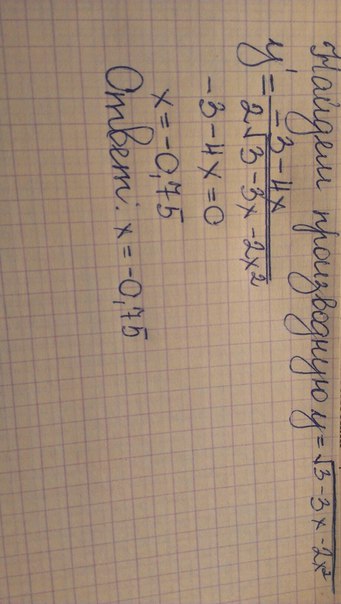 Найдем производную y = √3-3x-2x²
y' = -3-4x / 2√3-3x-2x²
-3-4x=0
x=-0,75
Ответ: x=-0,75